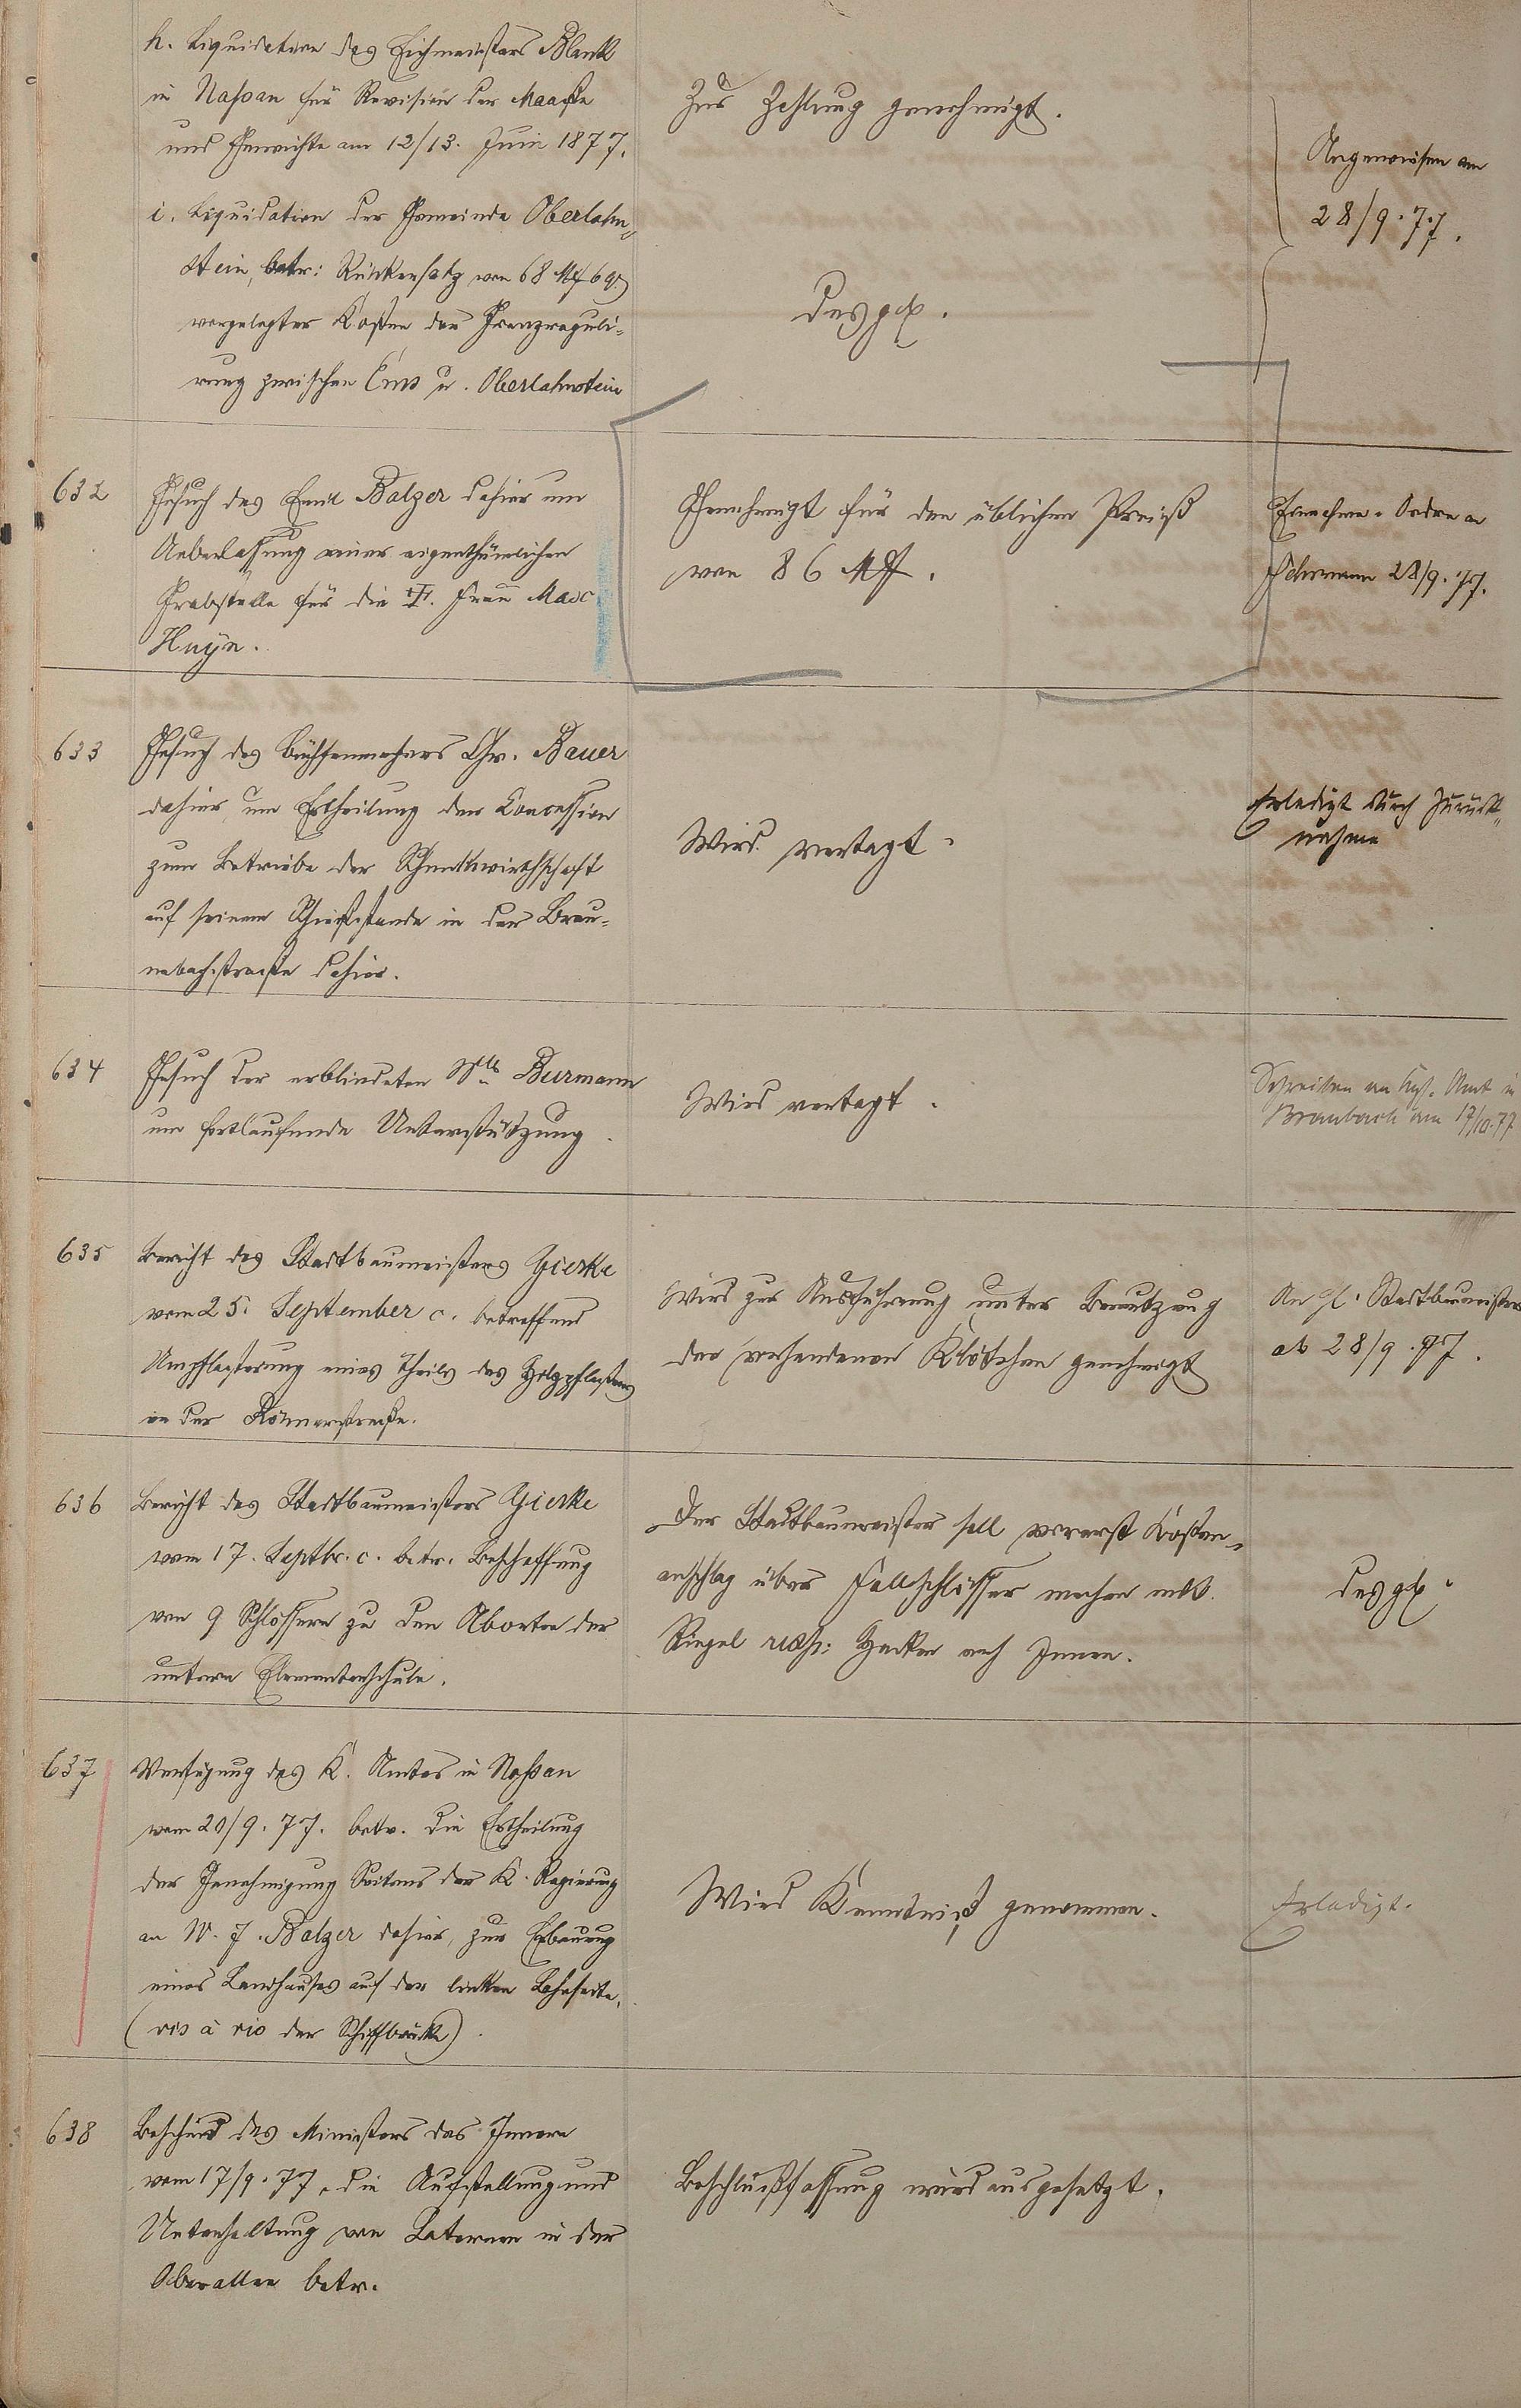 h. Liquidation des Eichmeisters Blank
in Nassau für Revision der Maaße
und Gewichte am 12/13. Juni 1877.
Zur Zahlung genehmigt.
Angewiesen am
28/9.77.
i. Liquidation der Gemeinde Oberlahn-
stein, betr: Rückersatz von 68 M 69
vorgelegter Kosten der Grenzreguli-
rung zwischen Ems u. Oberlahnstein
desgl.
632
Gesuch des Emil Balzer dahier um
Ueberlassung einer eigenthümlichen
Grabstelle für die Frau Marc
Huyn.
Genehmigt für den üblichen Preiß
von 86 M.
Einnahme-Ordre a
28/9.77.
633
Gesuch des Büchsenmachers Chr. Bauer
dahier, um Ertheilung der Concession
zum Betriebe der Schenkwirthschaft
auf seinem Schießstande in der Brau-
nebachstraße dahier.
Wird vertagt.
Erledigt durch Zurück-
nahme
634
Gesuch der erblindeten Burmann
um fortlaufende Unterstützung.
Wird vertagt.
Schreiben an Kgl. Amt in
Braubach am 17/10.77
635
Bericht des Stadtbaumeisters Gierke
vom 25. September c. betreffend
Umpflasterung eines Theils des Holzpflasters
in der Römerstraße.
Wird zur Ausführung unter Benutzung
der vorhandenen Klötzchen genehmigt
An H. Stadtbaumeister
ab 28/9.77.
636
Bericht des Stadtbaumeisters Gierke
vom 17. Septbr. c. betr. Beschaffung
von 9 Schlössern zu den Aborten der
unteren Elementarschule.
Der Stadtbaumeister soll vorerst Kosten-
anschlag über Fallschlösser machen mit
Riegel resp: Haken nach Innen.
desgl.
637
Verfügung des K. Amtes in Nassau
vom 20/9.77. betr. die Ertheilung
der Genehmigung Seitens der K. Regierung
an W. J. Balzer dahier, zur Erbauung
eines Landhauses auf der linken Lahnseite,
(vis à vis der Schiffbrücke).
Wird Kenntniß genommen.
Erledigt.
638
Bescheid des Ministers des Innern
vom 17/9.77, die Aufstellung und
Unterhaltung von Laternen in der
Oberallee betr.
Beschlußfassung wird ausgesetzt.